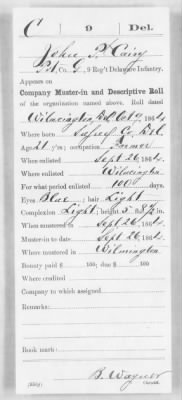 C 9 Del.
John P. Cainy
Pvt, Co. G, 9 Reg't Delaware Infantry.
Appears on
Company Muster-in and Descriptive Roll
of the organization named above. Roll dated
Wilmington, Del. Oct 9, 1864.
Where born Sussex Co. Del.
Age 21 y'rs; occupation Farmer
When enlisted Sept 26, 1864.
Where enlisted Wilmington
For what period enlisted 100 days.
Eyes Blue; hair Light
Complexion Light; height 5 ft. 8½ in.
When mustered in Sept 26, 1864.
Muster-in to date Sept 26, 1864.
Where mustered in Wilmington
Bounty paid $ 100; due $ 100
Where credited
Company to which assigned
Remarks:
Book mark:
B. Wagner
(339g) Copyist.